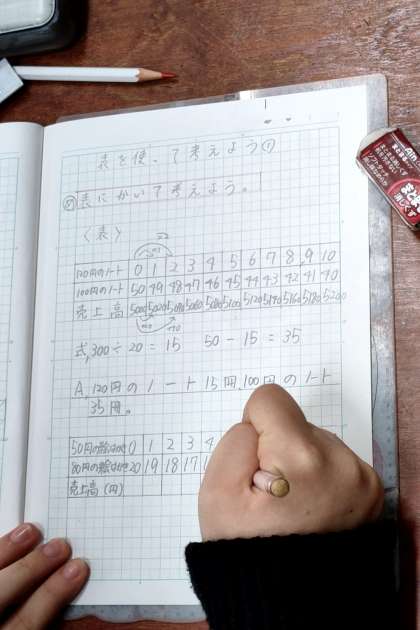 表を使って考えよう⑦
め 表にかいて考えよう。
〈表〉
120円のノート 0 1 2 3 4 5 6 7 8 9 10
100円のノート 50 49 48 47 46 45 44 43 42 41 40
売上高 5000 5020 5040 5060 5080 5100 5120 5140 5160 5180 5200
式, 300÷20=15 50-15=35
A, 120円のノート15冊, 100円のノート
35冊。
50円の 0 1 2 3 4
80円の 20 19 18 17 1
売上高(円)